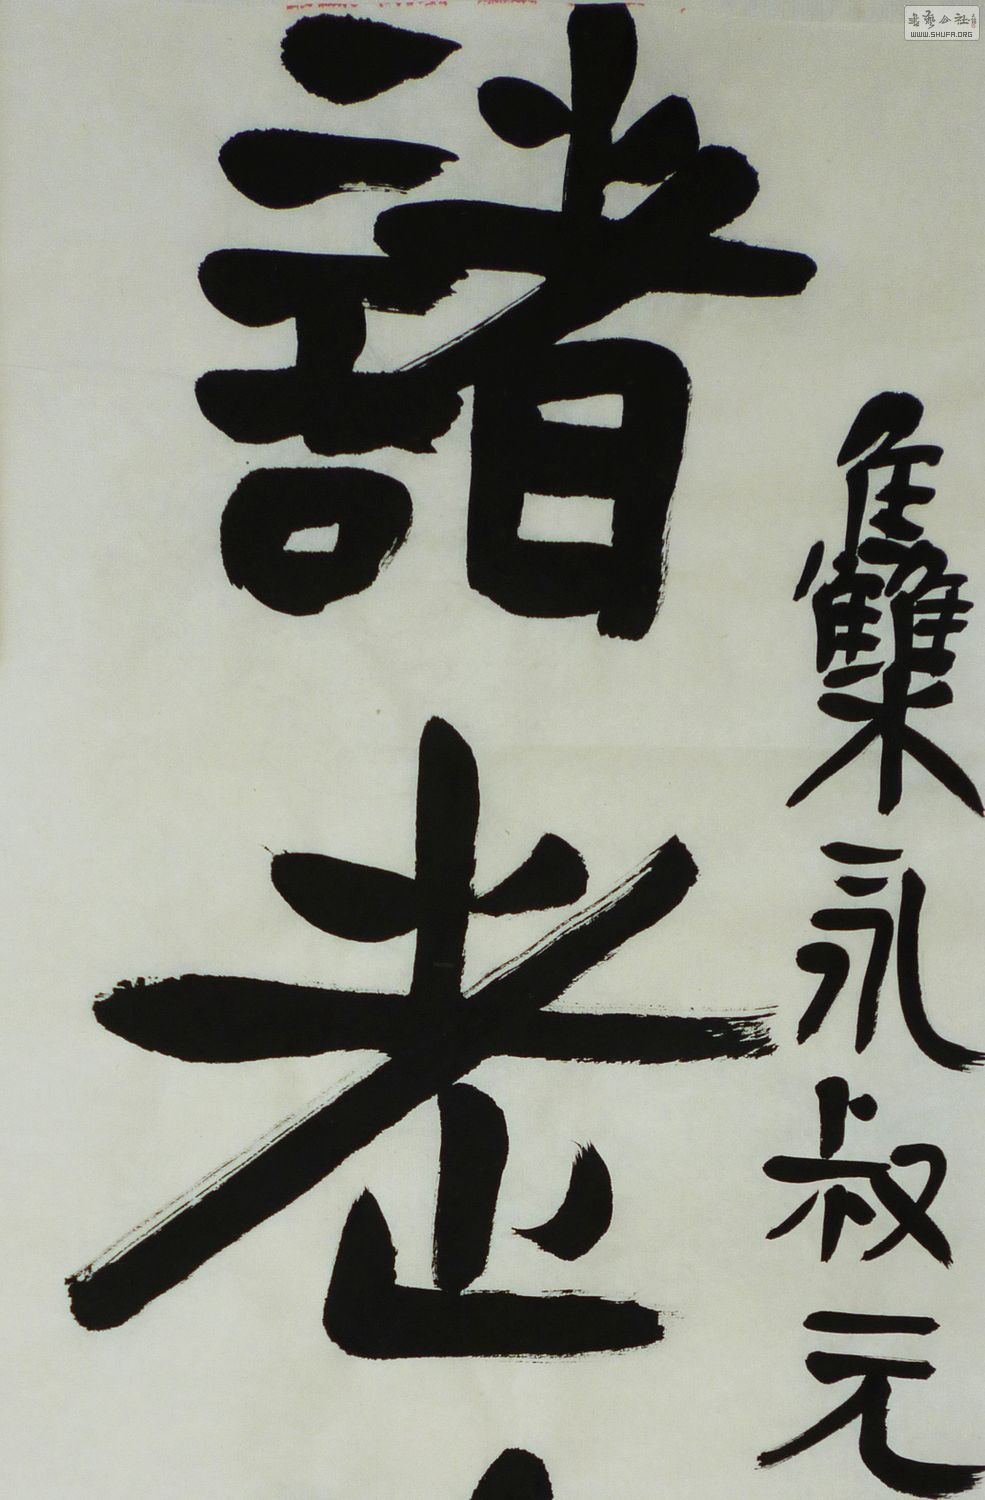 雧永叔元
諸老
書藝公社
WWW.SHUFA.ORG